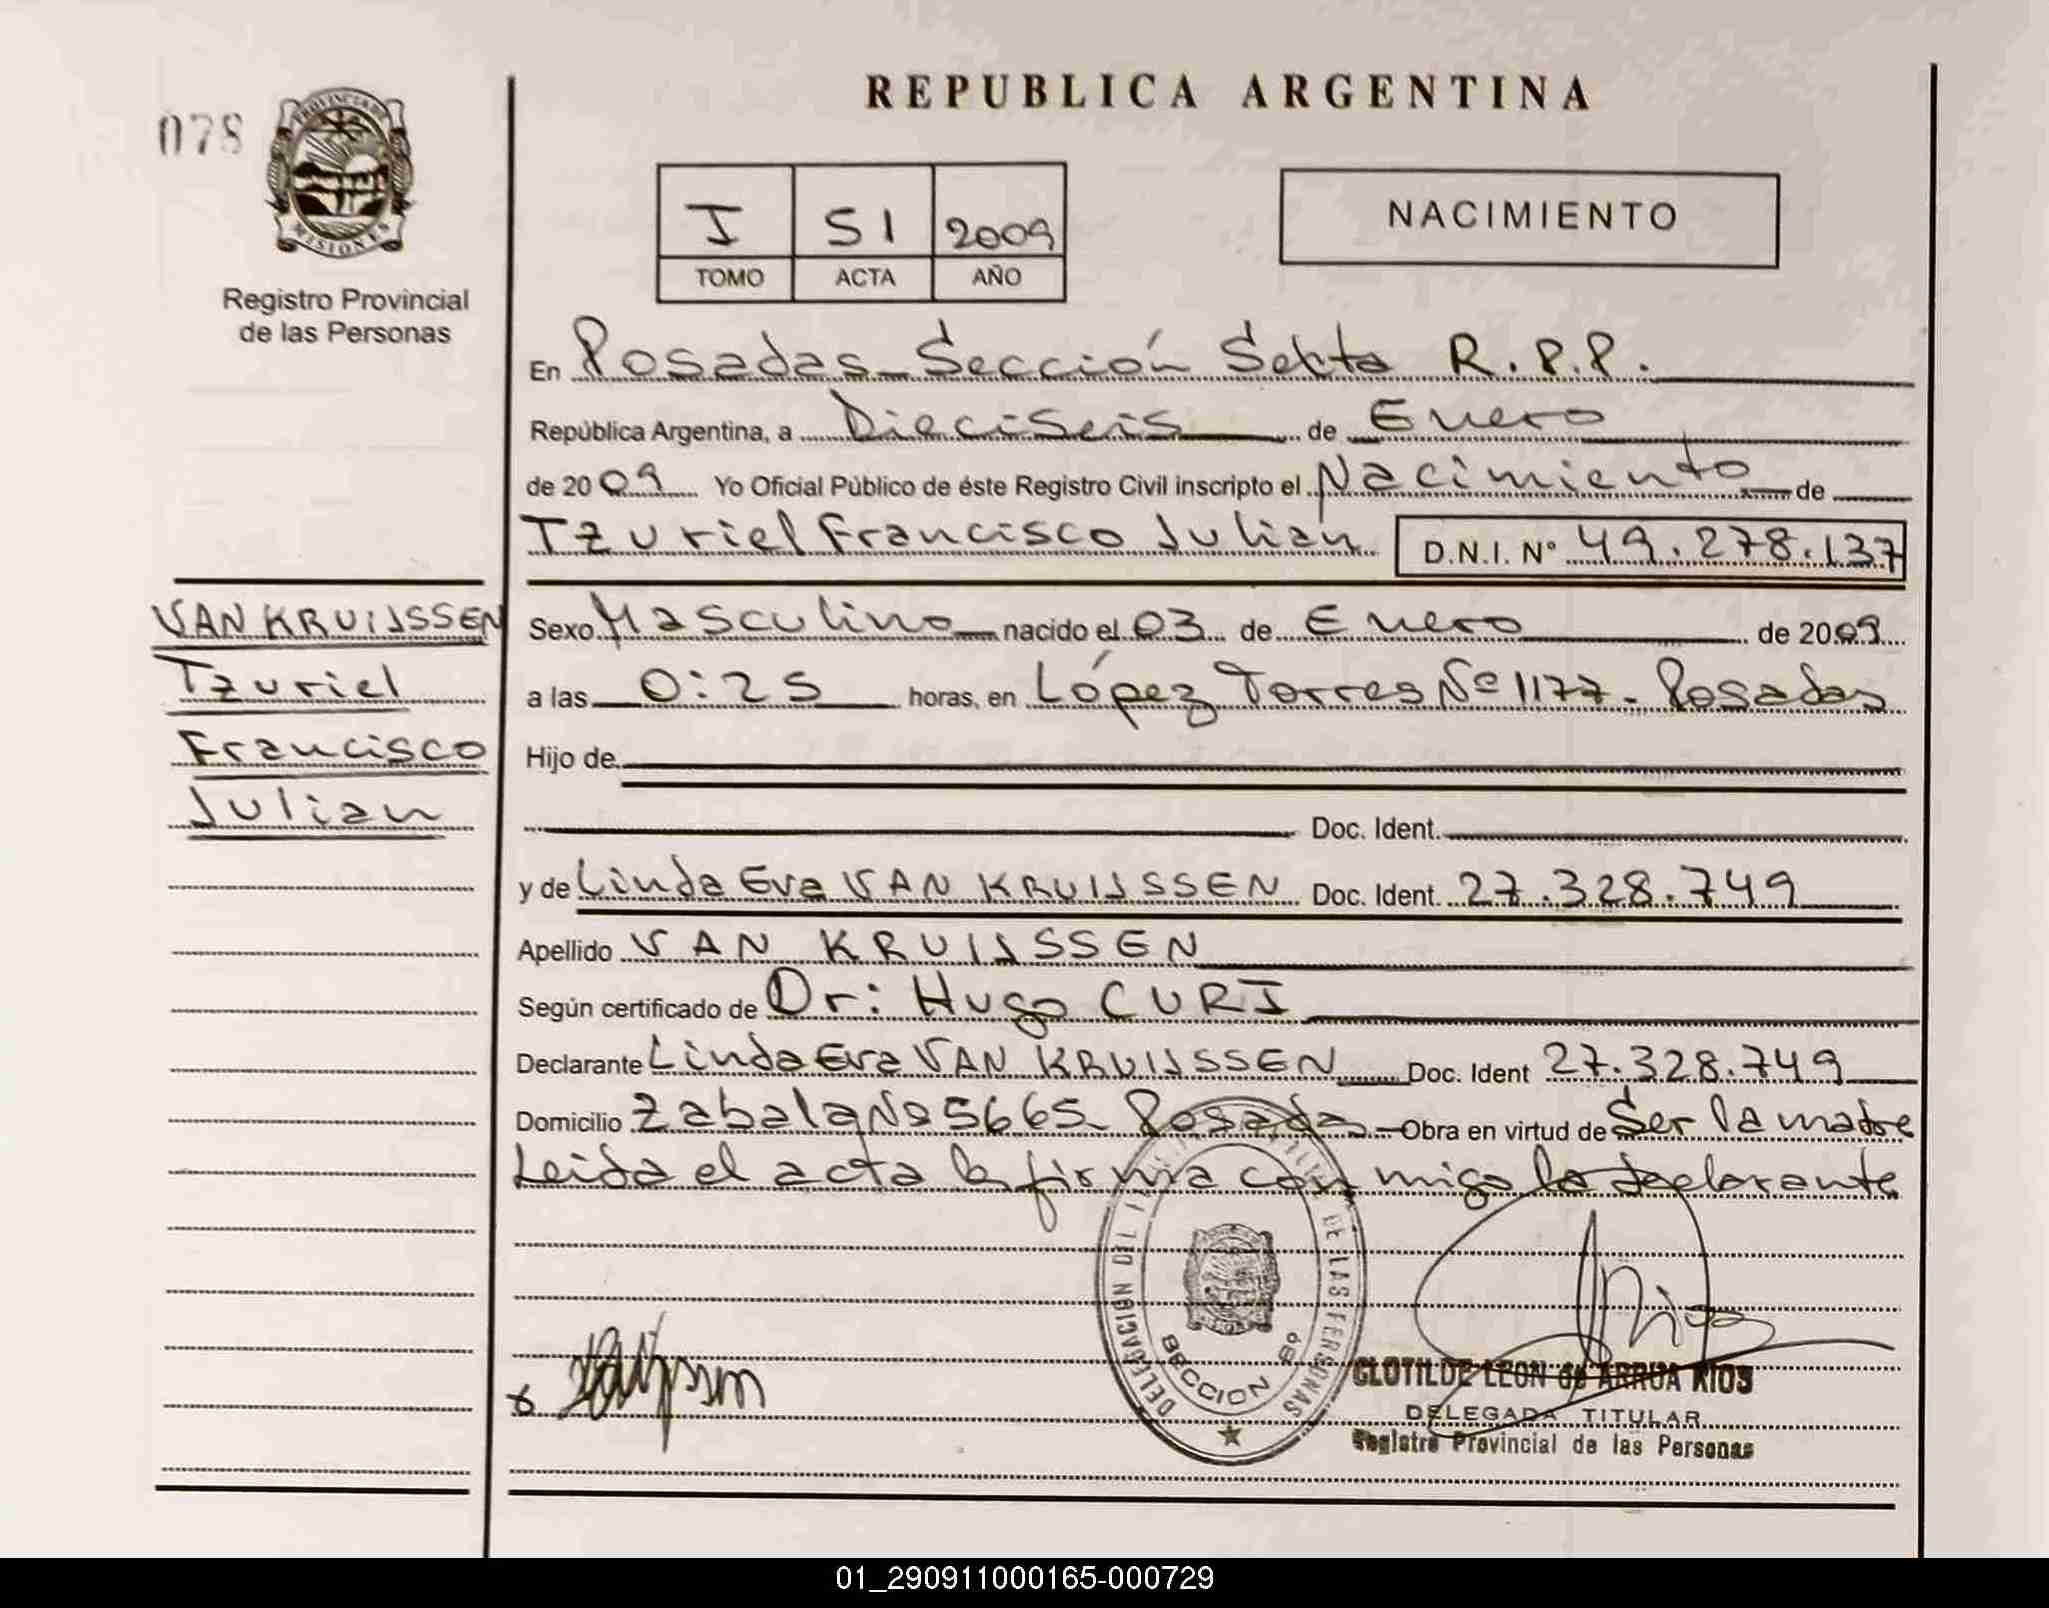 REPUBLICA ARGENTINA
078
PROVINCIA DE
MISIONES
Registro Provincial
de las Personas
I 51 2009
TOMO ACTA AÑO
NACIMIENTO
En Posadas - Sección Sexta R.P.P.
República Argentina, a Dieciseis de Enero
de 2009 Yo Oficial Público de éste Registro Civil inscripto el Nacimiento de
Tzuriel Francisco Julián D.N.I. Nº 49.278.137
VAN KRUIJSSEN
Tzuriel
Francisco
Julian
Sexo Masculino nacido el 03 de Enero de 2009
a las 0:25 horas, en López Torres Nº 1177 - Posadas
Hijo de
Doc. Ident.
y de Linda Eva VAN KRUIJSSEN Doc. Ident. 27.328.749
Apellido VAN KRUIJSSEN
Según certificado de Dr: Hugo CURI
Declarante Linda Eva VAN KRUIJSSEN Doc. Ident 27.328.749
Domicilio Zabala Nº 5665 - Posadas Obra en virtud de Ser la madre
Leida el acta la firma con migo la declarante
DELEGACION DEL DE LAS PERSONAS
SECCION
CLOTILDE LEON de ARRUA RIOS
DELEGADA TITULAR
Registro Provincial de las Personas
01_290911000165-000729